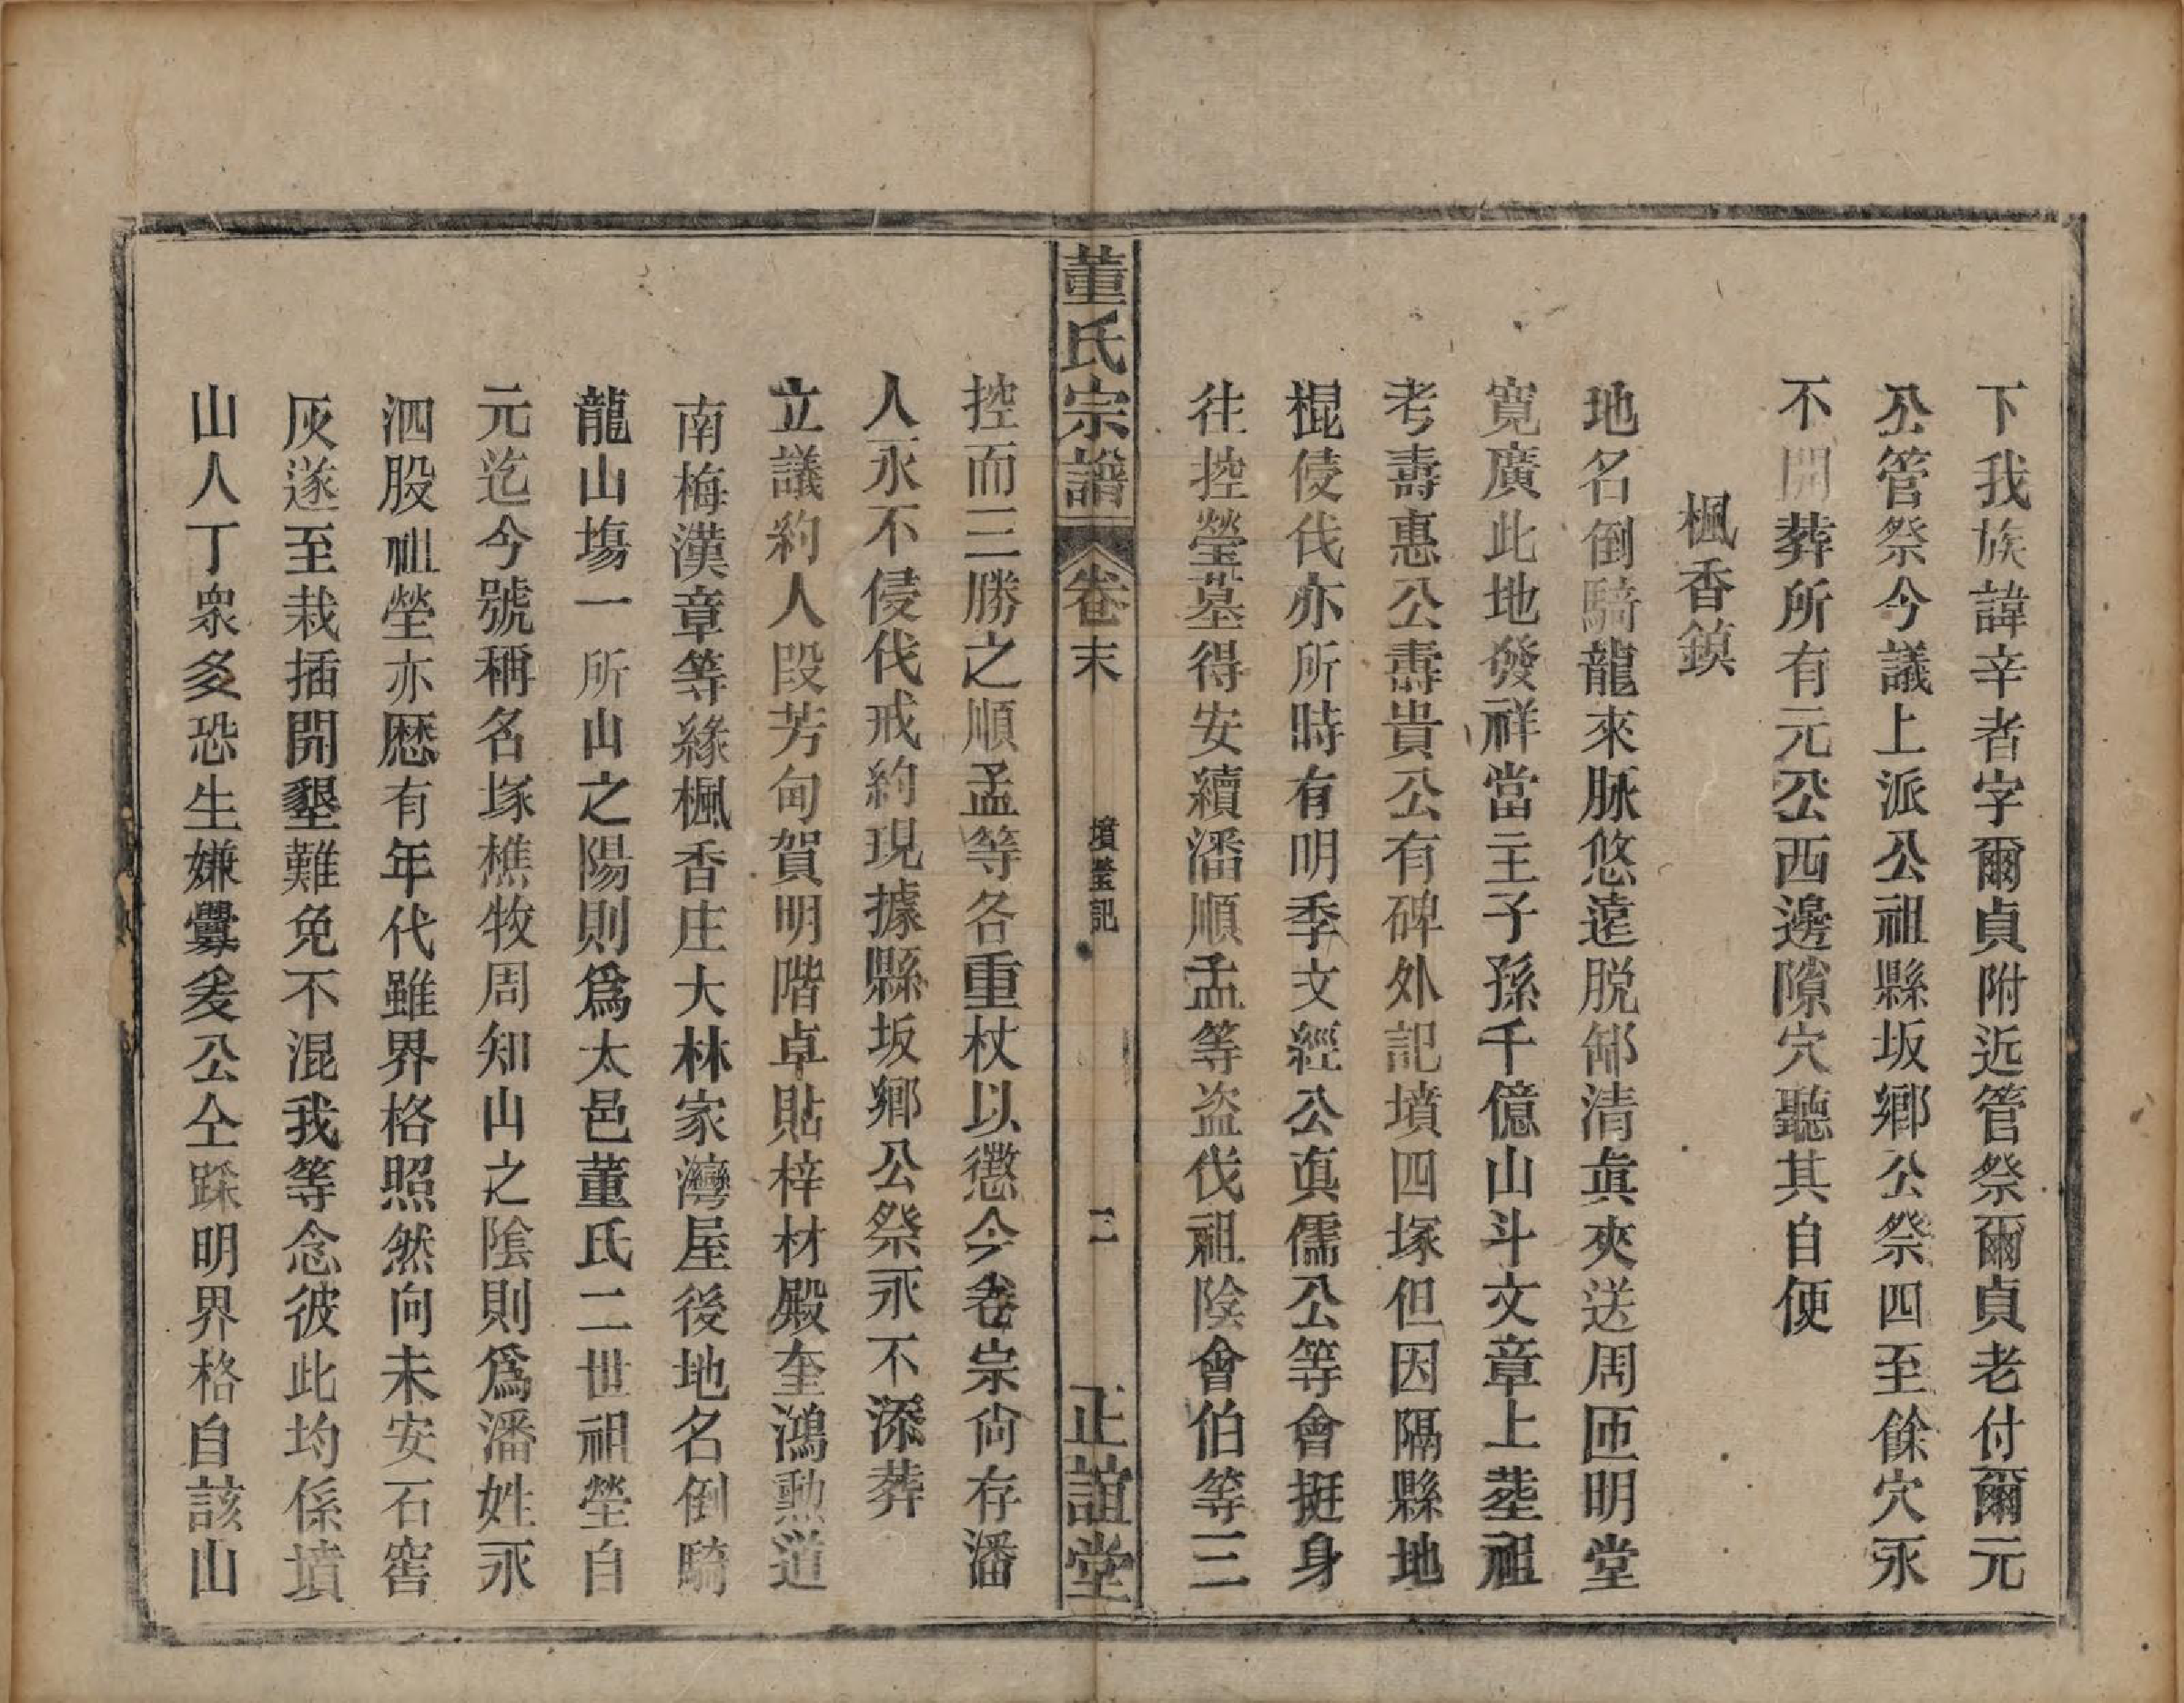 下我族諱辛者字爾貞附近管祭爾貞老付爾元
公管祭今議上派公祖縣坂鄉公祭四至餘穴永
不開葬所有元公西邊隙穴聽其自便
楓香鎮
地名倒騎龍來脉悠遠脫卸清眞夾送周匝明堂
寬廣此地發祥當主子孫千億山斗文章上塟祖
考壽惠公壽貴公有碑外記墳四塚但因隔縣地
棍侵伐亦所時有明季文經公眞儒公等會挺身
往控塋墓得安續潘順孟等盜伐祖陰會伯等三
董氏宗譜
卷末
墳塋記
三
正誼堂
控而三勝之順孟等各重杖以懲今卷宗尙存潘
人永不侵伐戒約現據縣坂鄉公祭永不添葬
立議約人段芳甸賀明階卓貼梓材殿奎鴻勲道
南梅漢章等緣楓香庄大林家灣屋後地名倒騎
龍山塲一所山之陽則爲太邑董氏二世祖塋自
元迄今號稱名塚樵牧周知山之陰則爲潘姓永
泗股祖塋亦歷有年代雖界格照然向未安石窖
灰遂至栽插開墾難免不混我等念彼此均係墳
山人丁衆多恐生嫌釁爰公仝踩明界格自該山